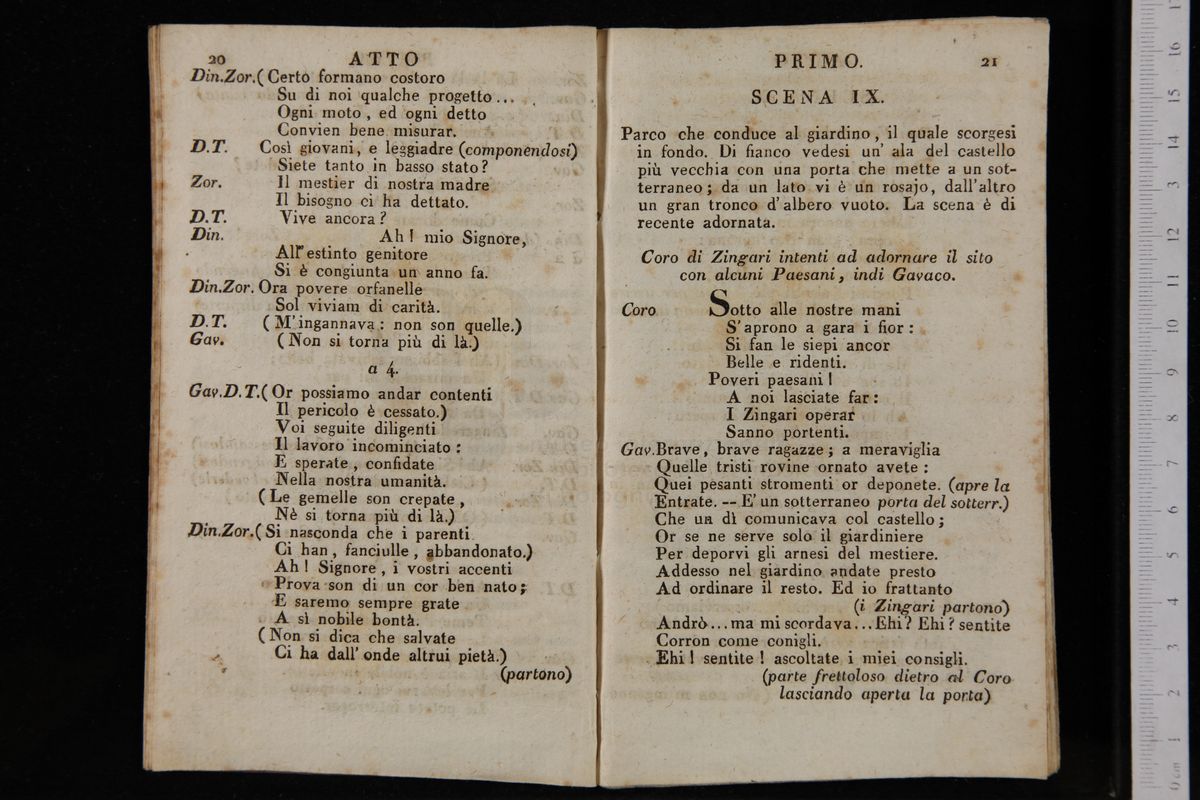 20 ATTO
Din.Zor.( Certo formano costoro
Su di noi qualche progetto...
Ogni moto, ed ogni detto
Convien bene misurar.
D.T. Così giovani, e leggiadre (componendosi)
Siete tanto in basso stato?
Zor. Il mestier di nostra madre
Il bisogno ci ha dettato.
D.T. Vive ancora?
Din. Ah! mio Signore,
All' estinto genitore
Si è congiunta un anno fa.
Din.Zor. Ora povere orfanelle
Sol viviam di carità.
D.T. ( M'ingannava: non son quelle.)
Gav. ( Non si torna più di là.)
a 4.
Gav.D.T.( Or possiamo andar contenti
Il pericolo è cessato.)
Voi seguite diligenti
Il lavoro incominciato:
E sperate, confidate
Nella nostra umanità.
( Le gemelle son crepate,
Nè si torna più di là.)
Din.Zor.( Si nasconda che i parenti
Ci han, fanciulle, abbandonato.)
Ah! Signore, i vostri accenti
Prova son di un cor ben nato;
E saremo sempre grate
A sì nobile bontà.
( Non si dica che salvate
Ci ha dall' onde altrui pietà.)
(partono)
PRIMO. 21
SCENA IX.
Parco che conduce al giardino, il quale scorgesi
in fondo. Di fianco vedesi un' ala del castello
più vecchia con una porta che mette a un sot-
terraneo; da un lato vi è un rosajo, dall'altro
un gran tronco d'albero vuoto. La scena è di
recente adornata.
Coro di Zingari intenti ad adornare il sito
con alcuni Paesani, indi Gavaco.
Coro Sotto alle nostre mani
S'aprono a gara i fior:
Si fan le siepi ancor
Belle e ridenti.
Poveri paesani!
A noi lasciate far:
I Zingari operar
Sanno portenti.
Gav. Brave, brave ragazze; a meraviglia
Quelle tristi rovine ornato avete:
Quei pesanti stromenti or deponete. (apre la
Entrate. -- E' un sotterraneo porta del sotterr.)
Che un dì comunicava col castello;
Or se ne serve solo il giardiniere
Per deporvi gli arnesi del mestiere.
Addesso nel giardino andate presto
Ad ordinare il resto. Ed io frattanto
(i Zingari partono)
Andrò...ma mi scordava...Ehi? Ehi? sentite
Corron come conigli.
Ehi! sentite! ascoltate i miei consigli.
(parte frettoloso dietro al Coro
lasciando aperta la porta)
0 cm 1 2 3 4 5 6 7 8 9 10 11 12 13 14 15 16 17